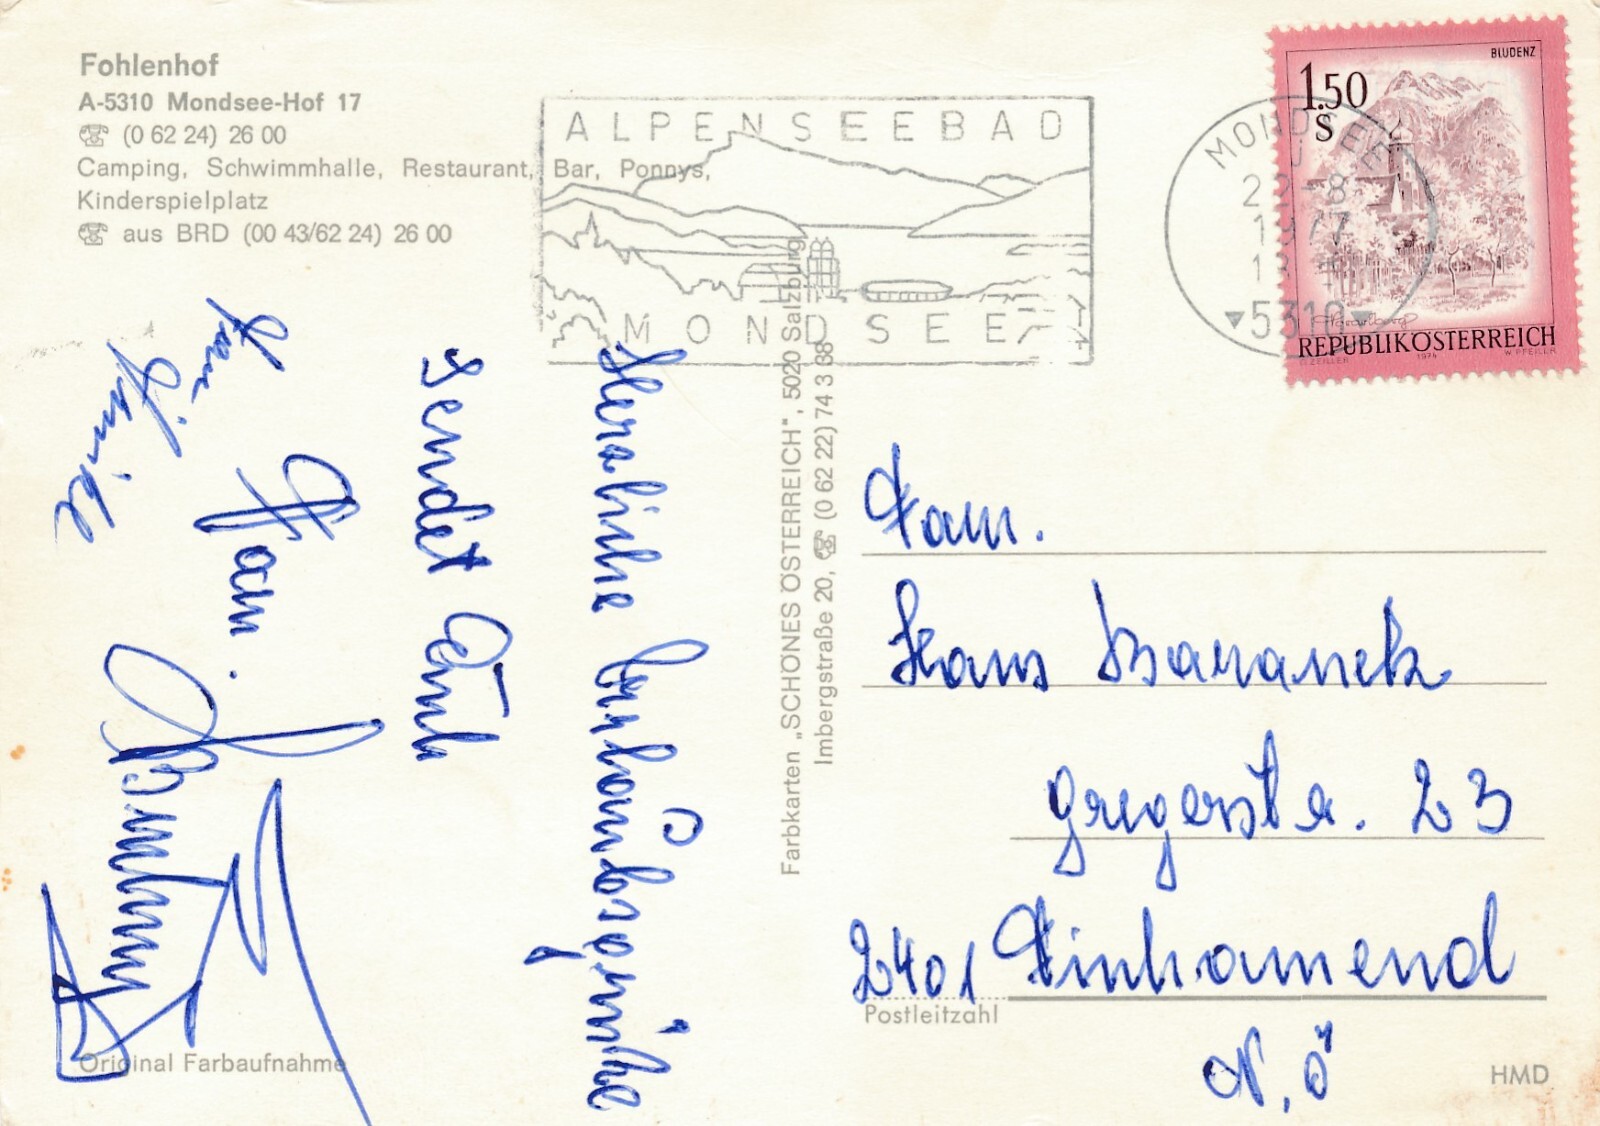 Fohlenhof
A-5310 Mondsee-Hof 17
☎ (0 62 24) 26 00
Camping, Schwimmhalle, Restaurant, Bar, Ponnys,
Kinderspielplatz
☎ aus BRD (00 43/62 24) 26 00
ALPENSEEBAD
MONDSEE
MONDSEE
22-8
1977
5310
BLUDENZ
1.50
S
REPUBLIK ÖSTERREICH
1974
W. PFEILER
Herzliche
Urlaubsgrüße
sendet Euch
Fam.
Farbkarten „SCHÖNES ÖSTERREICH", 5020 Salzburg
Imbergstraße 20, ☎ (0 62 22) 74 3 68
Fam.
Hans Baranek
Gregerstr. 23
2401 Fischamend
N.Ö
Postleitzahl
Original Farbaufnahme
HMD